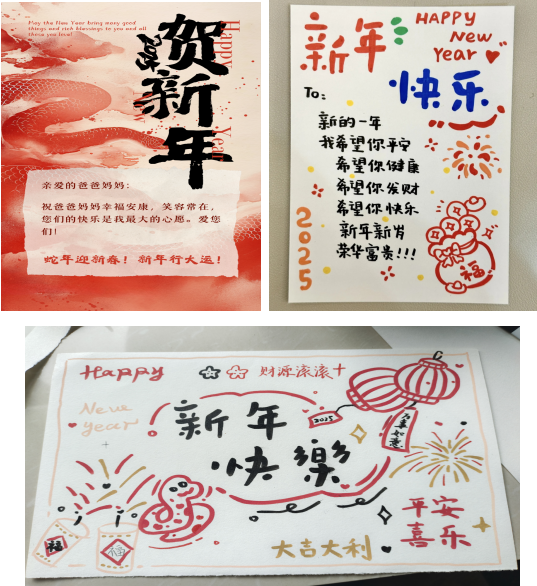 May the New Year bring many good
things and rich blessings to you and all
those you love!
Happy
贺新年
Year
亲爱的爸爸妈妈：
祝爸爸妈妈幸福安康，笑容常在，
您们的快乐是我最大的心愿。爱您
们！
蛇年迎新春！ 新年行大运！
HAPPY
New
Year
新年
快乐
To:
新的一年
我希望你平安
希望你健康
希望你发财
希望你快乐
新年新岁
荣华富贵!!!
2025
福
Happy
财源滚滚
New
year
新年
快樂
2025
万事如意
平安
喜乐
大吉大利
福
福